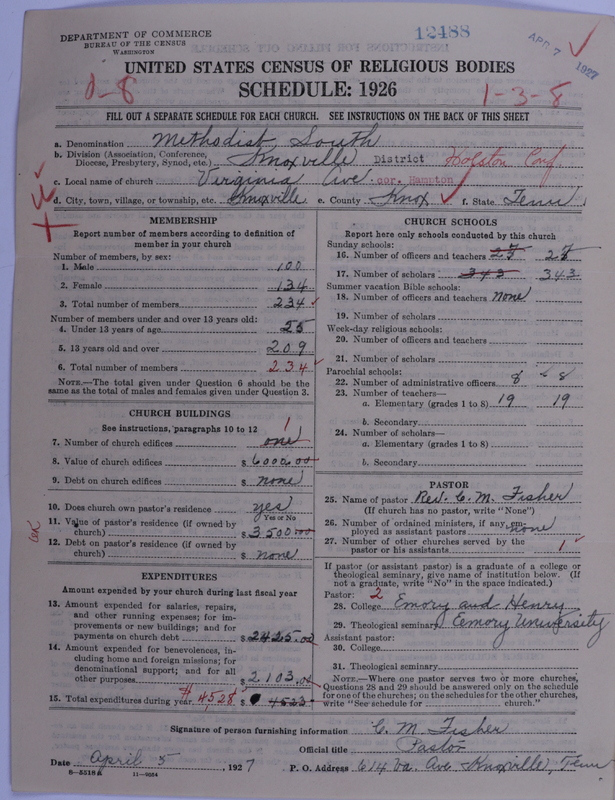 DEPARTMENT OF COMMERCE
BUREAU OF THE CENSUS
WASHINGTON
12488
APR 7 1927
UNITED STATES CENSUS OF RELIGIOUS BODIES
SCHEDULE: 1926
1-3-8
FILL OUT A SEPARATE SCHEDULE FOR EACH CHURCH. SEE INSTRUCTIONS ON THE BACK OF THIS SHEET
a. Denomination Methodist South
b. Division (Association, Conference, Diocese, Presbytery, Synod, etc.) Knoxville District Holston Conf
c. Local name of church Virginia Ave cor. Hampton
d. City, town, village, or township, etc. Knoxville e. County Knox f. State Tenn
MEMBERSHIP
Report number of members according to definition of member in your church
Number of members, by sex:
1. Male 100
2. Female 134
3. Total number of members 234
Number of members under and over 13 years old:
4. Under 13 years of age 25
5. 13 years old and over 209
6. Total number of members 234
NOTE.—The total given under Question 6 should be the same as the total of males and females given under Question 3.
CHURCH BUILDINGS
See instructions, paragraphs 10 to 12
7. Number of church edifices one 1
8. Value of church edifices $ 6000.00
9. Debt on church edifices $ none
10. Does church own pastor's residence yes
Yes or No
11. Value of pastor's residence (if owned by church) $ 3500.00
12. Debt on pastor's residence (if owned by church) $ none
EXPENDITURES
Amount expended by your church during last fiscal year
13. Amount expended for salaries, repairs, and other running expenses; for improvements or new buildings; and for payments on church debt $ 2425.00
14. Amount expended for benevolences, including home and foreign missions; for denominational support; and for all other purposes $ 2,103.00
15. Total expenditures during year $4528 $ 4523
CHURCH SCHOOLS
Report here only schools conducted by this church
Sunday schools:
16. Number of officers and teachers 25 25
17. Number of scholars 343 343
Summer vacation Bible schools:
18. Number of officers and teachers none
19. Number of scholars
Week-day religious schools:
20. Number of officers and teachers
21. Number of scholars
Parochial schools:
22. Number of administrative officers 8 8
23. Number of teachers—
a. Elementary (grades 1 to 8) 19 19
b. Secondary
24. Number of scholars—
a. Elementary (grades 1 to 8)
b. Secondary
PASTOR
25. Name of pastor Rev. C. M. Fisher
(If church has no pastor, write "None")
26. Number of ordained ministers, if any, employed as assistant pastors none
27. Number of other churches served by the pastor or his assistants 1
If pastor (or assistant pastor) is a graduate of a college or theological seminary, give name of institution below. (If not a graduate, write "No" in the space indicated.)
Pastor: 2
28. College Emory and Henry
29. Theological seminary Emory University
Assistant pastor:
30. College
31. Theological seminary
NOTE.—Where one pastor serves two or more churches, Questions 28 and 29 should be answered only on the schedule for one of the churches; on the schedules for the other churches, write "See schedule for church."
Signature of person furnishing information C. M. Fisher
Official title Pastor
Date April 5, 1927 P. O. Address 614 Va. Ave Knoxville, Tenn
8—5518 a 11—9054